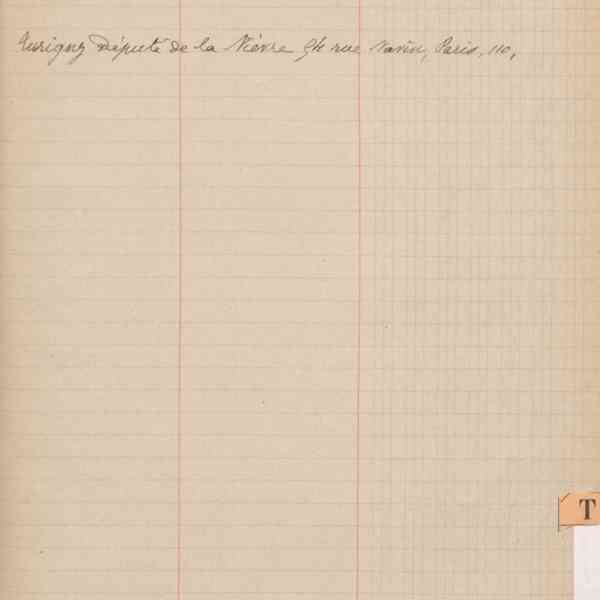 Turigny Député de la Nièvre 54 rue Navin, Paris, 110,
T